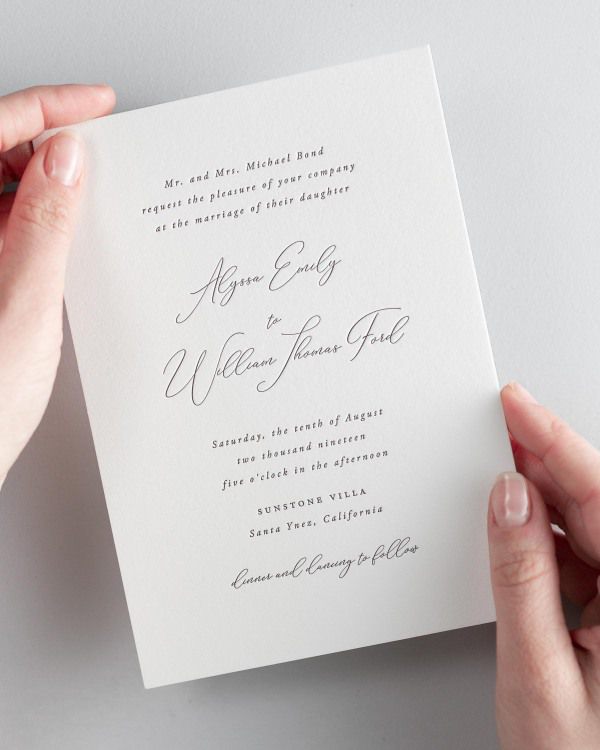 Mr. and Mrs. Michael Bond
request the pleasure of your company
at the marriage of their daughter
Alyssa Emily
to
William Thomas Ford
Saturday, the tenth of August
two thousand nineteen
five o'clock in the afternoon
SUNSTONE VILLA
Santa Ynez, California
dinner and dancing to follow